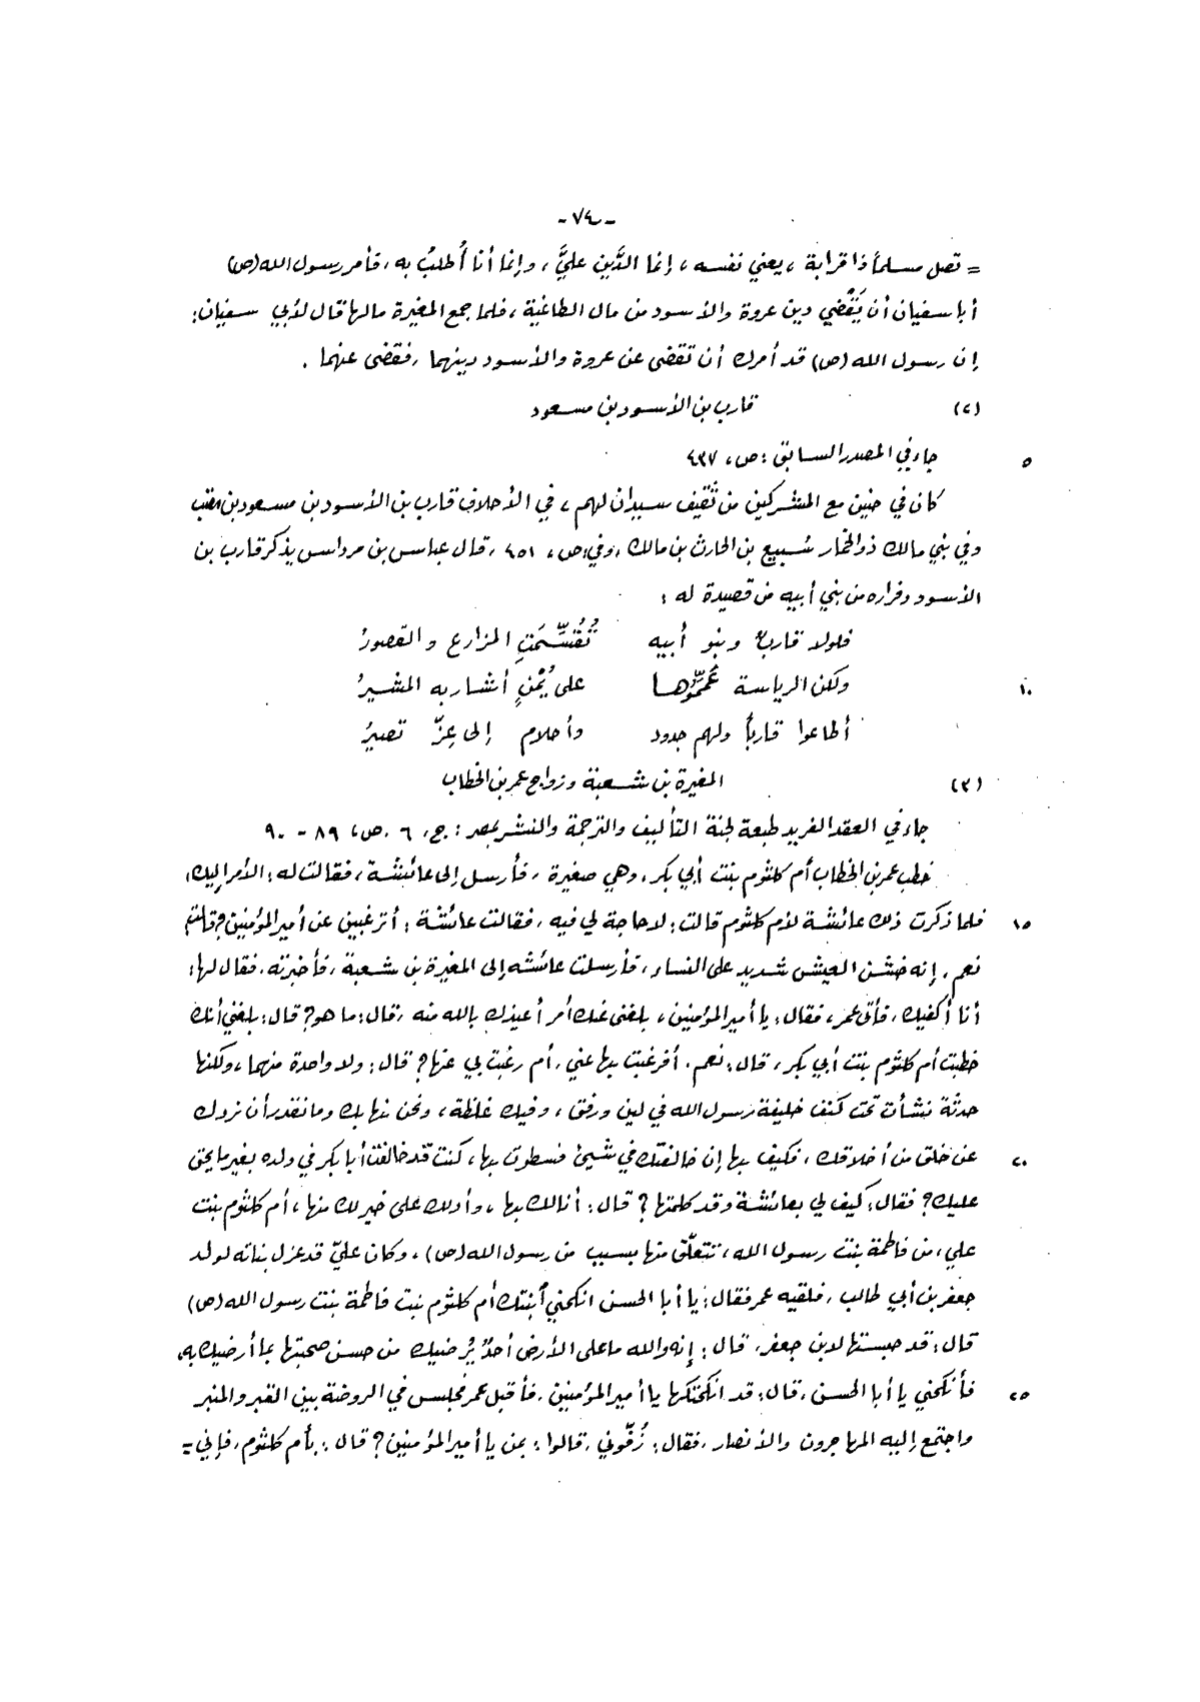 - ٧٤ -
= تصل مسلماً ذا قرابة ، يعني نفسه ، إنما الدَّين عليَّ ، وإنما أنا أُطلبُ به ، فأمر رسول الله (ص)
أبا سفيان أن يَقْضي دين عروة والأسود من مال الطاغية ، فلما جمع المغيرة مالها قال لأبي سفيان :
إن رسول الله (ص) قد أمرك أن تقضى عن عروة والأسود دينهما ، فقضى عنهما .
(٢) قارب بن الأسود بن مسعود
٥ جاء في المصدر السابق : ص ، ٤٣٧
كان في حنين مع المشركين من ثقيف سيدان لهم ، في الأحلاف قارب بن الأسود بن مسعود بن معتب
وفي بني مالك ذو الخمار سُبيع بن الحارث بن مالك ، وفي ص ، ٤٥١ ، قال عباس بن مرداس يذكر قارب بن
الأسود وفراره من بني أبيه من قصيدة له :
فلولا قاربٌ وبنو أبيه تُقُسِّمَتِ المزارع والقصورُ
١٠ ولكن الرياسة عُمِّمُوها على يُمْنٍ أشار به المشيرُ
أطاعوا قارباً ولهم جدود وأحلام إلى عِزّ تصيرُ
(٣) المغيرة بن شعبة وزواج عمر بن الخطاب
جاء في العقد الفريد طبعة لجنة التأليف والترجمة والنشر بمصر : ج ، ٦ ، ص ، ٨٩ - ٩٠
خطب عمر بن الخطاب أم كلثوم بنت أبي بكر ، وهي صغيرة ، فأرسل إلى عائشة ، فقالت له : الأمر إليك ،
١٥ فلما ذكرت ذلك عائشة لأم كلثوم قالت : لا حاجة لي فيه ، فقالت عائشة : أترغبين عن أمير المؤمنين ؟ قالت :
نعم ، إنه خشن العيش شديد على النساء ، فأرسلت عائشه إلى المغيرة بن شعبة ، فأخبرته ، فقال لها :
أنا أكفيك ، فأتى عمر ، فقال : يا أمير المؤمنين ، بلغنى عنك أمر أعيذك بالله منه ، قال : ما هو ؟ قال : بلغني أنك
خطبت أم كلثوم بنت أبي بكر ، قال : نعم ، أفرغبت بها عني ، أم رغبت بي عنها ؟ قال : ولا واحدة منهما ، ولكنها
حدثة نشأت تحت كنف خليفة رسول الله في لين ورفق ، وفيك غلظة ، ونحن نهابك وما نقدر أن نردك
٢٠ عن خلق من أخلاقك ، فكيف بها إن خالفتك في شيئ فسطوت بها ، كنت قد خالفت أبا بكر في ولده بغير ما يحق
عليك ؟ فقال : كيف لي بعائشة وقد كلمتها ؟ قال : أنا لك بها ، وأدلك على خير لك منها ، أم كلثوم بنت
علي ، من فاطمة بنت رسول الله ، تتعلّق منها بسبب من رسول الله (ص) ، وكان عليّ قد عزل بناته لولد
جعفر بن أبي طالب ، فلقيه عمر فقال : يا أبا الحسن انكحني أبنتك أم كلثوم بنت فاطمة بنت رسول الله (ص)
قال : قد حبستها لابن جعفر ، قال : إنه والله ما على الأرض أحدٌ يُرضيك من حسن صحبتها بما أرضيك به ،
٢٥ فأنكحني يا أبا الحسن ، قال : قد انكحتكها يا أمير المؤمنين ، فأقبل عمر فجلس في الروضة بين القبر والمنبر
واجتمع إليه المهاجرون والأنصار ، فقال : زُفّوني ، قالوا : بمن يا أمير المؤمنين ؟ قال : بأم كلثوم ، فإني =